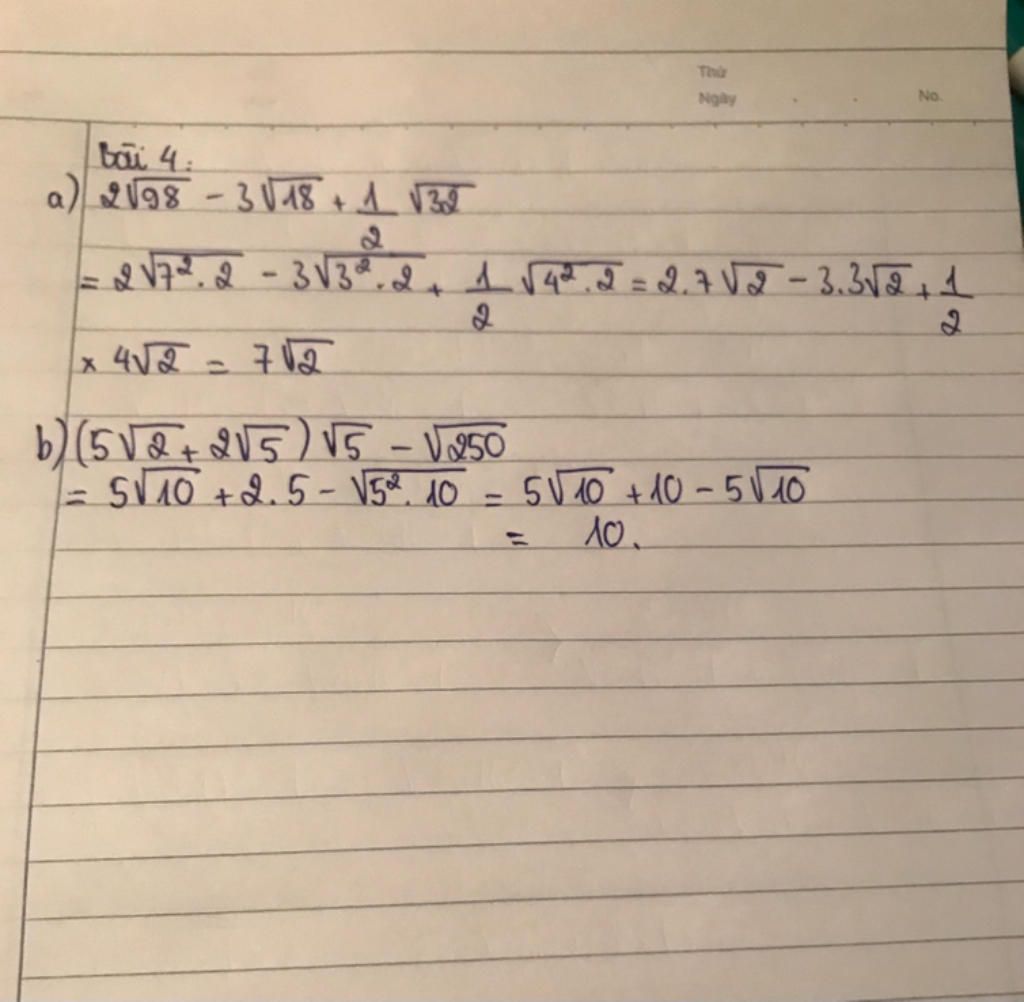 Thứ
Ngày . . No.
Bài 4:
a) 2√98 - 3√18 + 1/2 √32
= 2√(7². 2) - 3√(3². 2) + 1/2 √(4². 2) = 2.7√2 - 3.3√2 + 1/2
× 4√2 = 7√2
b) (5√2 + 2√5)√5 - √250
= 5√10 + 2.5 - √(5². 10) = 5√10 + 10 - 5√10
= 10.